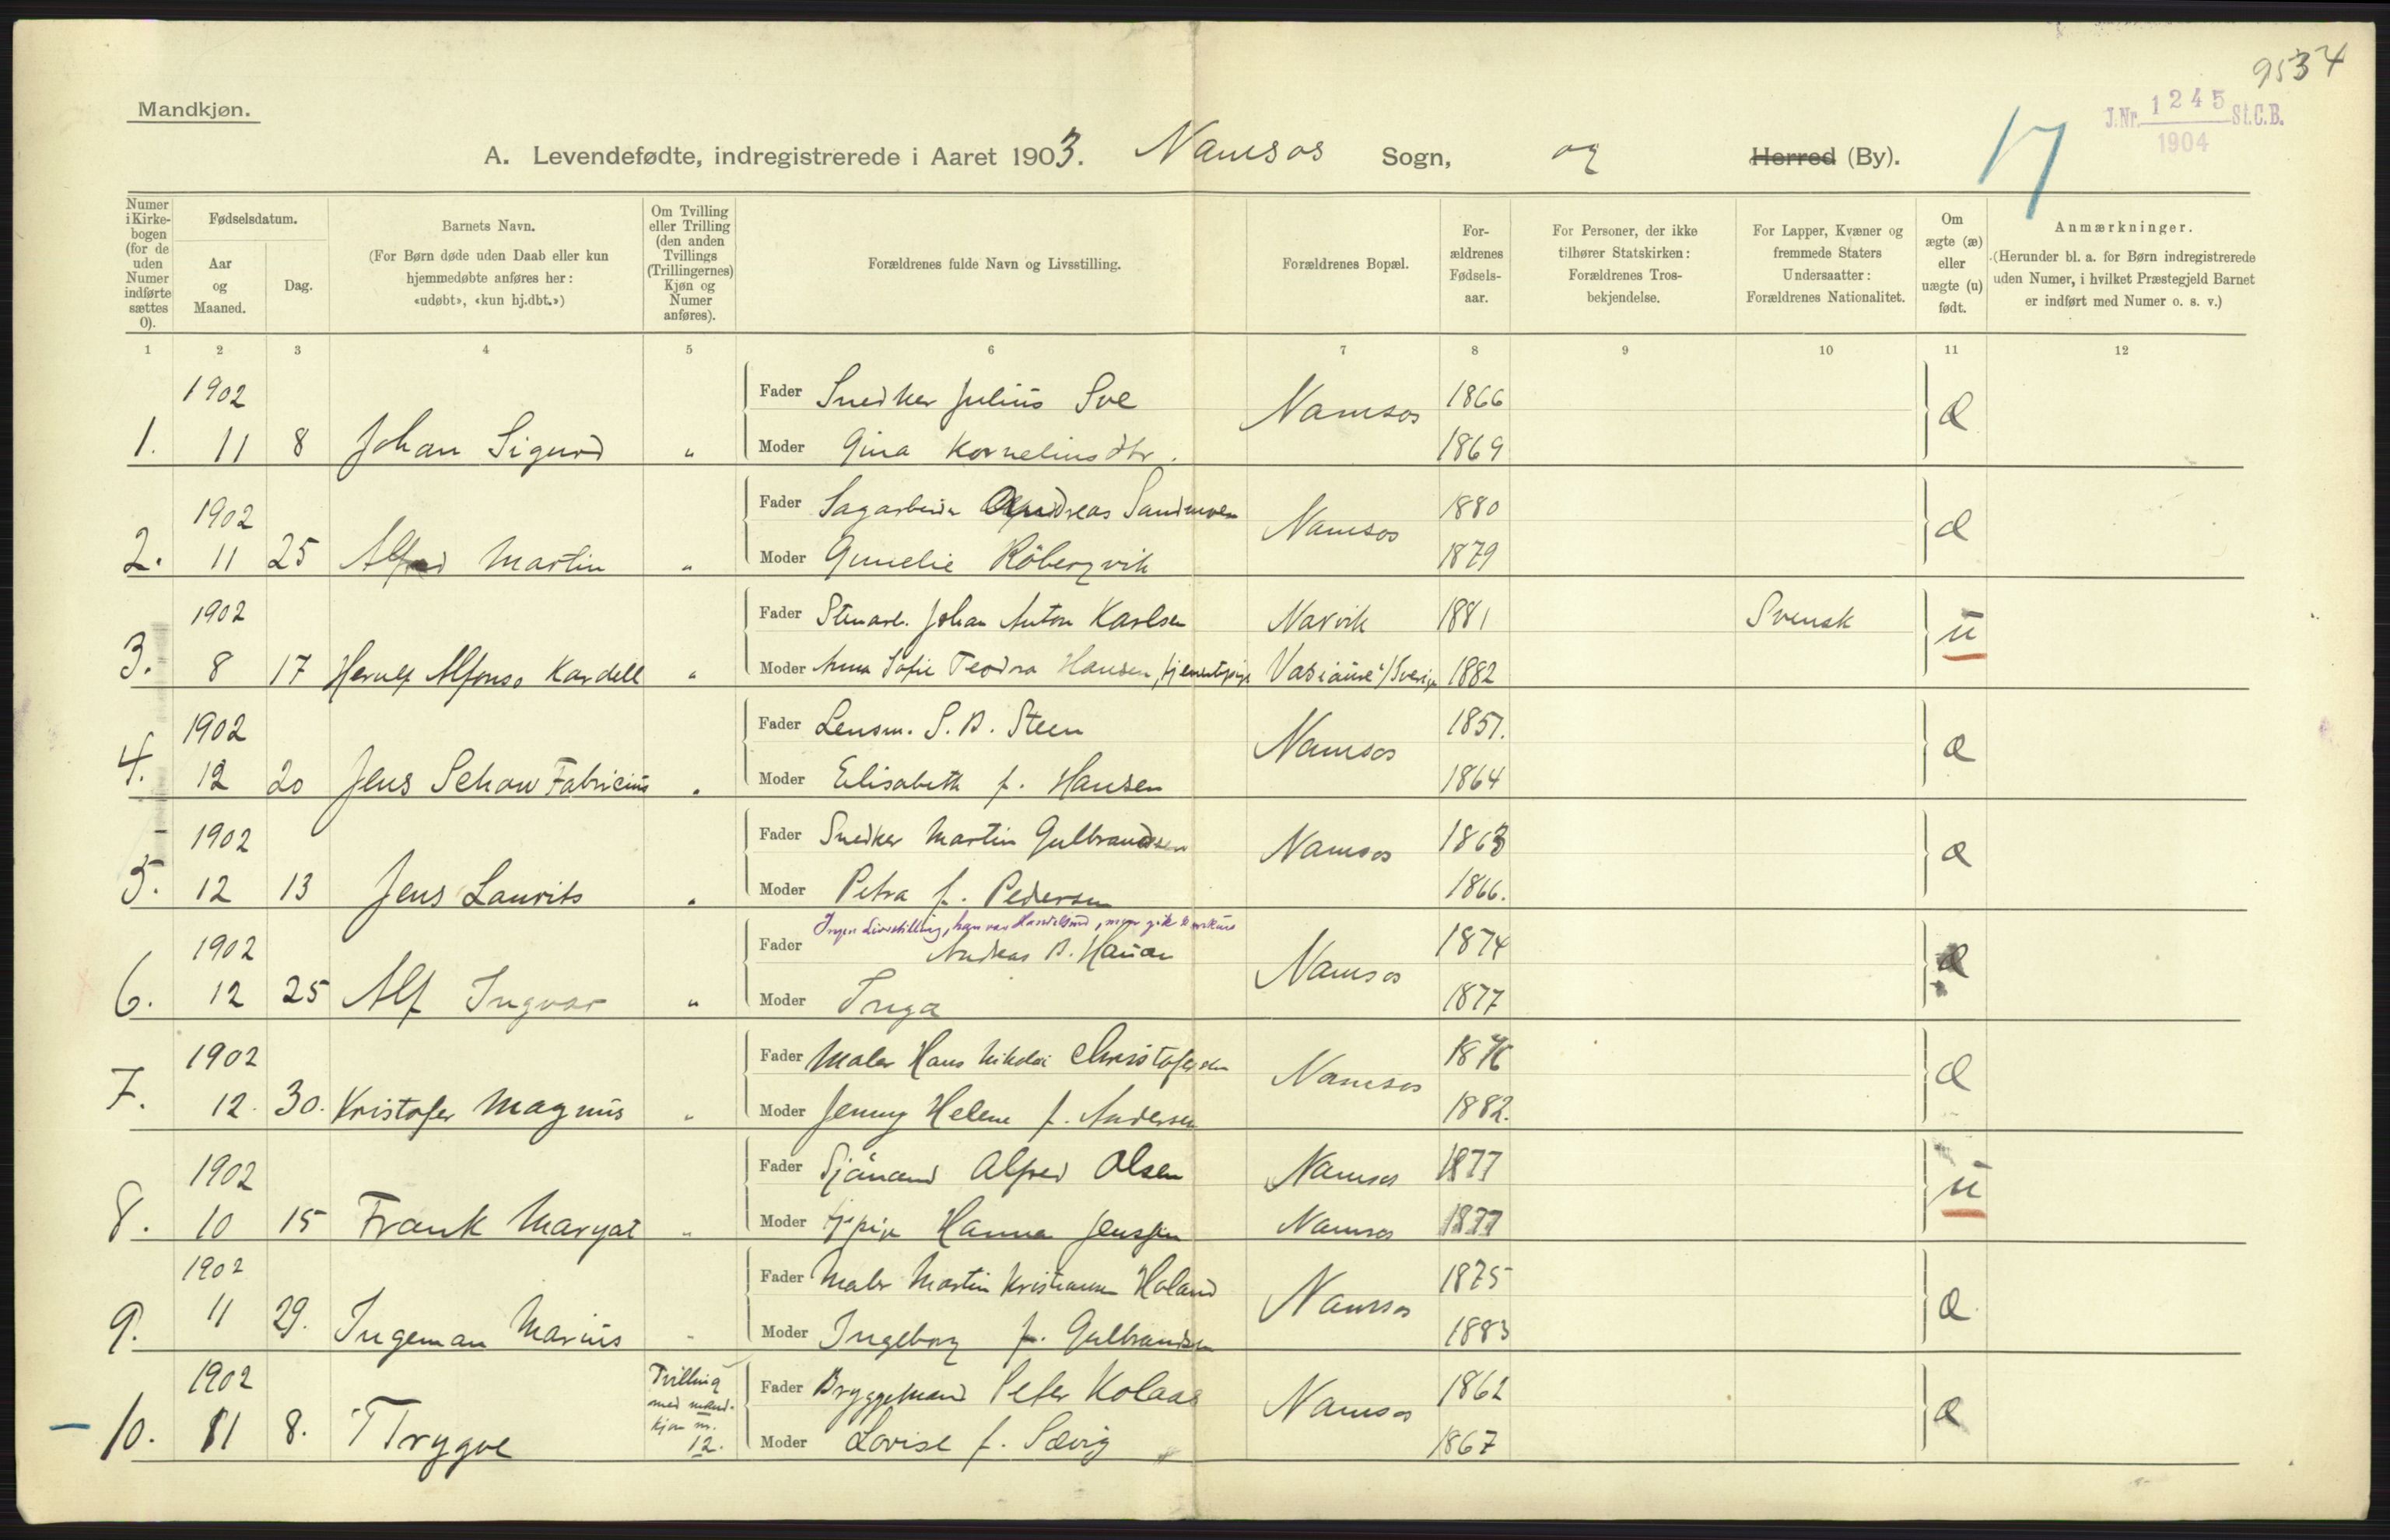 9534
Mandkjøn.
J.Nr. 1245 St.C.B.
1904
17
A. Levendefødte, indregistrerede i Aaret 1903. Namsos Sogn, og Herred (By).
Numer i Kirkebogen (for de uden Numer indførte sættes 0).
Fødselsdatum.
Aar og Maaned.
Dag.
Barnets Navn.
(For Børn døde uden Daab eller kun hjemmedøbte anføres her: «udøbt», «kun hj.dbt.»)
Om Tvilling eller Trilling (den anden Tvillings (Trillingernes) Kjøn og Numer anføres).
Forældrenes fulde Navn og Livsstilling.
Forældrenes Bopæl.
Forældrenes Fødselsaar.
For Personer, der ikke tilhører Statskirken: Forældrenes Trosbekjendelse.
For Lapper, Kvæner og fremmede Staters Undersaatter: Forældrenes Nationalitet.
Om ægte (æ) eller uægte (u) født.
Anmærkninger.
(Herunder bl. a. for Børn indregistrerede uden Numer, i hvilket Præstegjeld Barnet er indført med Numer o. s. v.)
1 2 3 4 5 6 7 8 9 10 11 12
1902 Fader Snedker Julius Sve Namsos 1866 æ
1. 11 8 Johan Sigurd " Moder Gina Korneliusdtr. 1869
1902 Fader Sagarbeider Andreas Sandmoen Namsos 1880 æ
2. 11 25 Alfred Martin " Moder Gunelie Röbergvik 1879
1902 Fader Stenarb. Johan Anton Karlsen Narvik 1881 Svensk u
3. 8 17 Herulf Alfonso Kardell " Moder Anna Sofie Teodora Hansen, tjenestepige Vasiaure /Sverige 1882
1902 Fader Lensm. S. B. Steen Namsos 1851. æ
4. 12 20 Jens Schow Fabricius " Moder Elisabeth f. Hansen 1864
1902 Fader Snedker Martin Gulbrandsen Namsos 1863 æ
5. 12 13 Jens Laurits " Moder Petra f. Pedersen 1866.
Ingen Livsstilling, han var Handelsmd, men gik konkurs
1902 Fader Andreas B. Hauan Namsos 1874 æ
6. 12 25 Alf Ingvar " Moder Inga 1877
1902 Fader Maler Hans Nikolai Christofersen Namsos 1876 æ
7. 12. 30. Kristofer Magnus " Moder Jenny Helene f. Andersen 1882.
1902 Fader Sjömand Alfred Olsen Namsos 1877 u
8. 10 15 Frank Maryat " Moder Tjpige Hanna Jenssen Namsos 1877
1902 Fader Maler Martin Kristiansen Holand Namsos 1875 æ
9. 11 29. Ingeman Marius " Moder Ingeborg f. Gulbrandsen 1883
1902 Tvilling med mandkjøn nr. 12. Fader Bryggemand Peter Kolaas Namsos 1862 æ
10. 11 8. Trygve Moder Lovise f. Sævig 1867